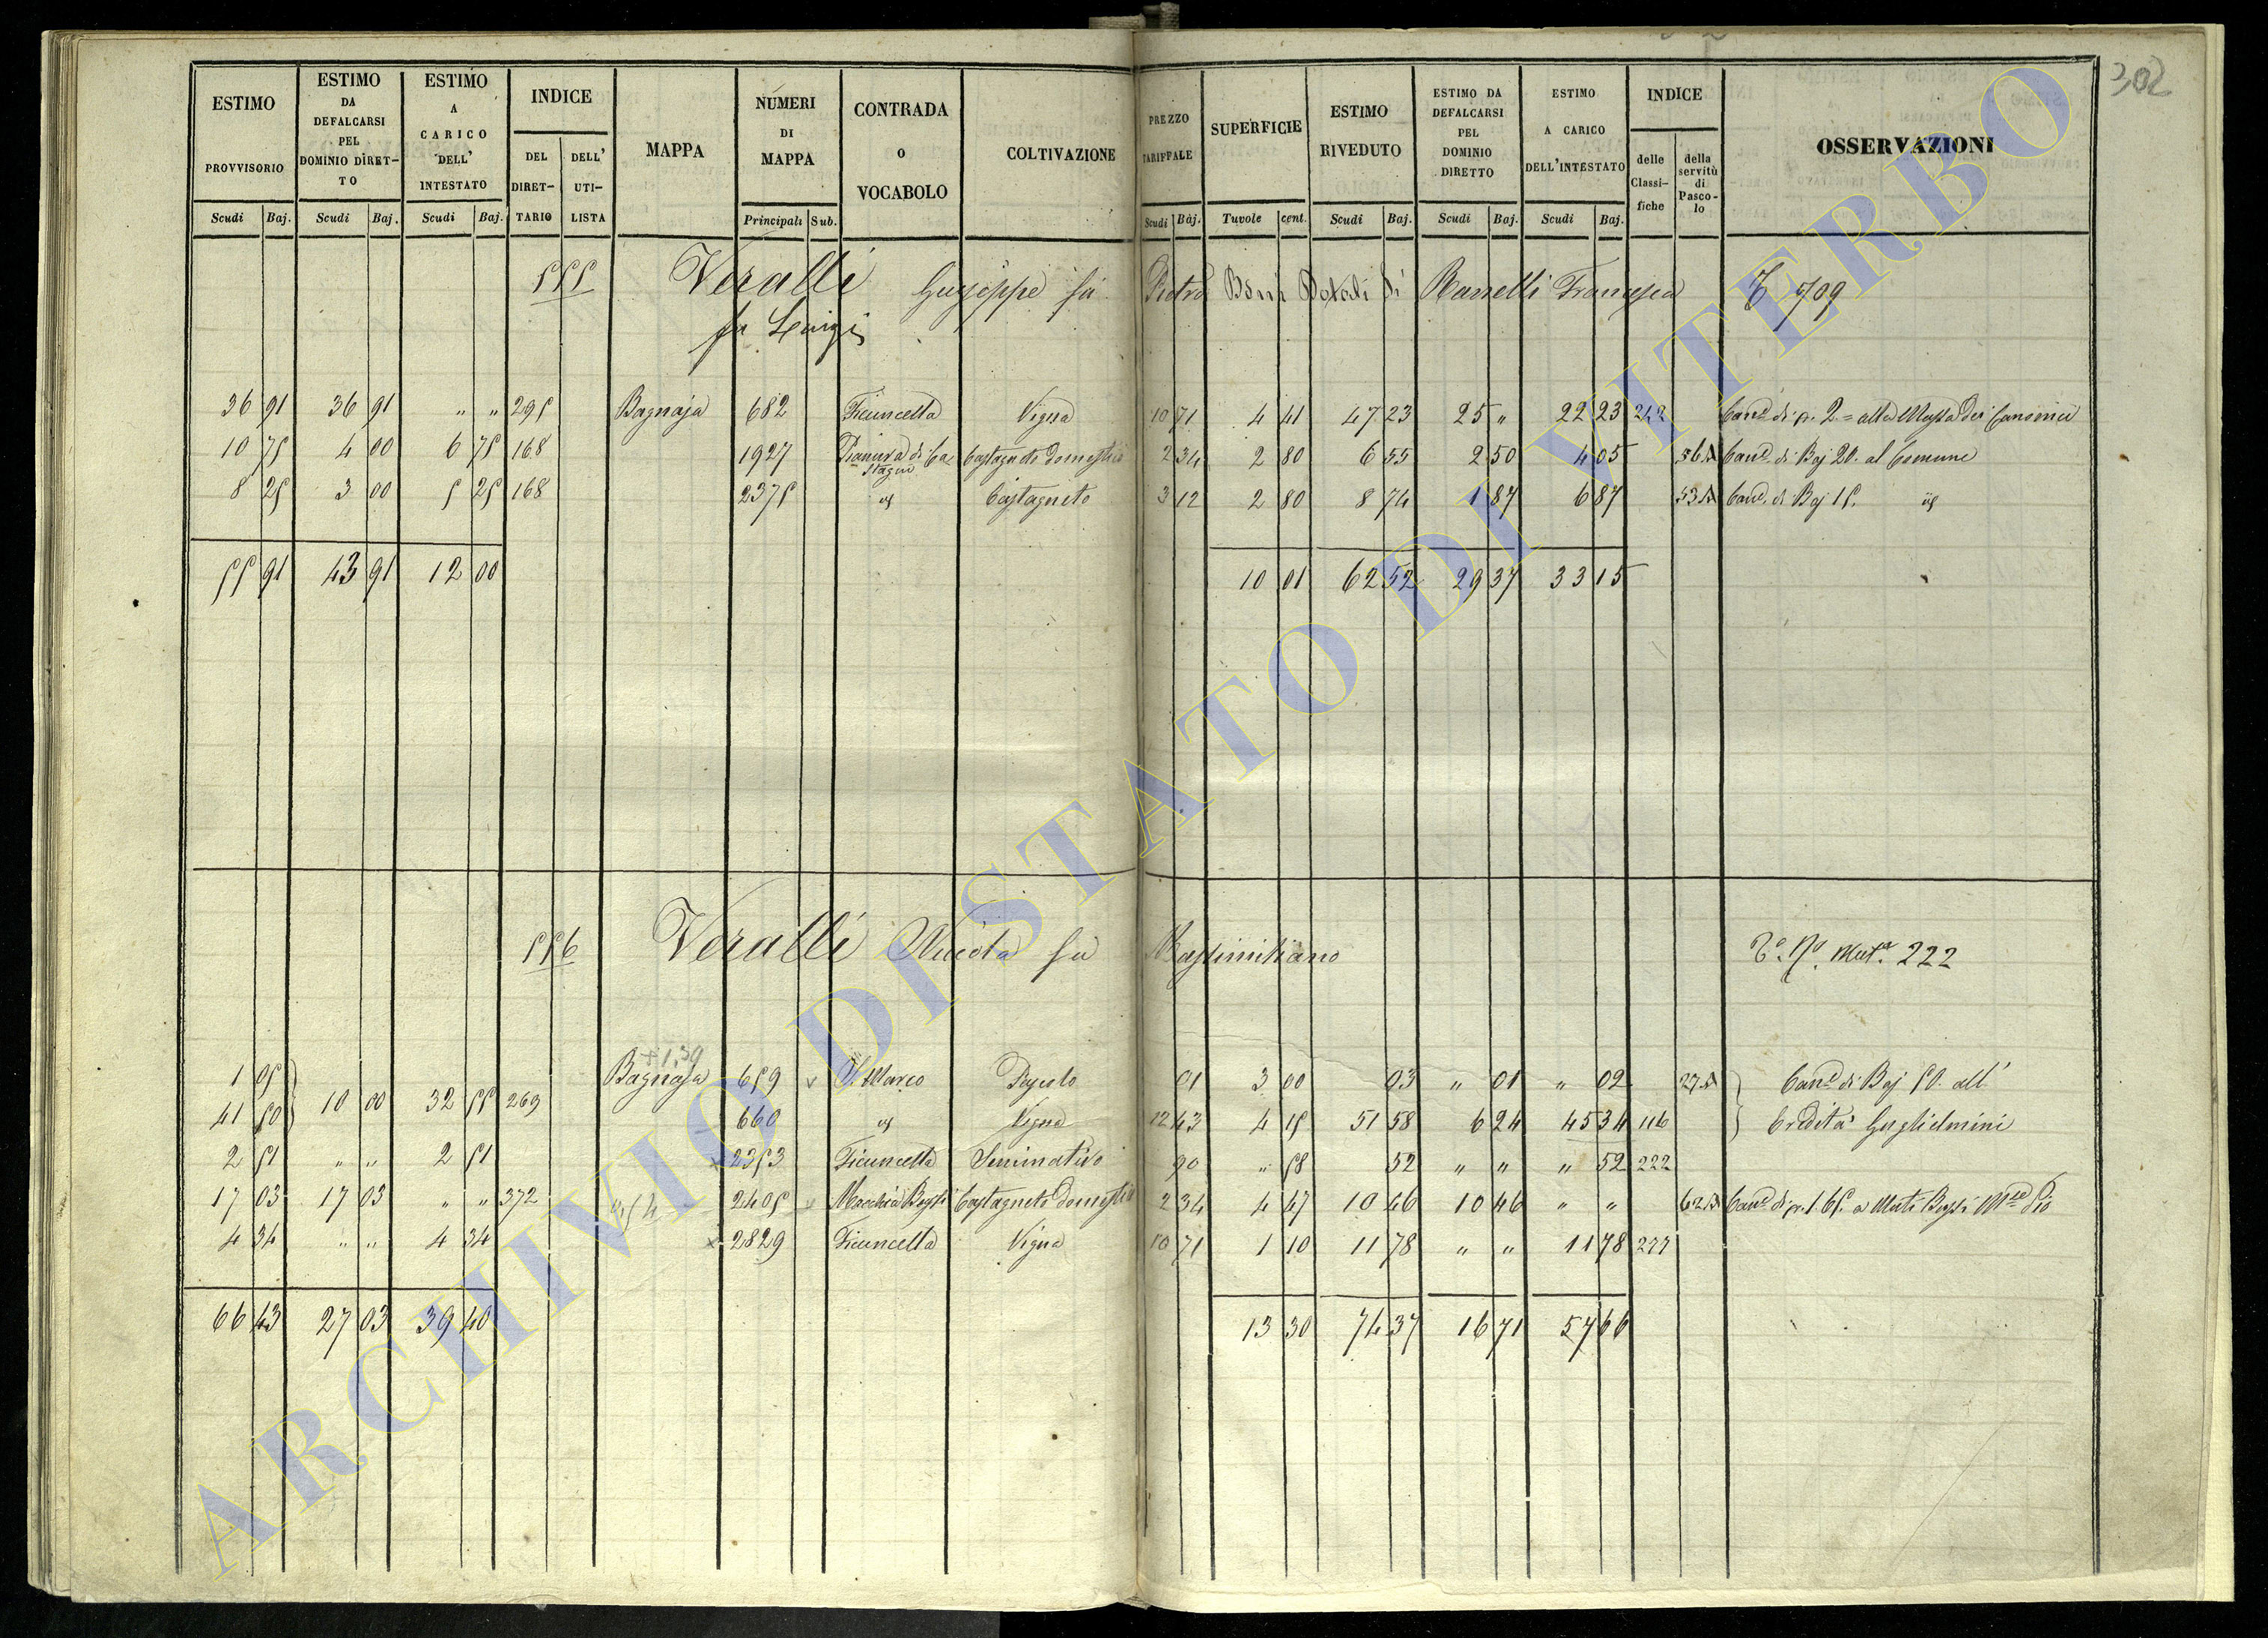 302
ESTIMO PROVVISORIO Scudi Baj. | ESTIMO DA DEFALCARSI PEL DOMINIO DIRETTO Scudi Baj. | ESTIMO A CARICO DELL' INTESTATO Scudi Baj. | INDICE DEL DIRETTARIO DELL' UTILISTA | MAPPA | NUMERI DI MAPPA Principali Sub. | CONTRADA O VOCABOLO | COLTIVAZIONE | PREZZO TARIFFALE Scudi Baj. | SUPERFICIE Tavole cent. | ESTIMO RIVEDUTO Scudi Baj. | ESTIMO DA DEFALCARSI PEL DOMINIO DIRETTO Scudi Baj. | ESTIMO A CARICO DELL'INTESTATO Scudi Baj. | INDICE delle Classifiche della servitù di Pascolo | OSSERVAZIONI
555 Veralli Giuseppe fu Pietro Beni Dotali di Francesca 709
fu Luigi
36 91 36 91 " " 295 Bagnaja 682 Ficuncella Vigna 10 71 4 41 47 23 25 " 22 23 242 Cane di 2. = alla Massa dei Canonici
10 75 4 00 6 75 168 1927 Pianura di Castagno Castagneto domestico 2 34 2 80 6 55 2 50 4 05 Cane di Baj 20. al Comune
8 25 3 00 5 25 168 2375 Castagneto 3 12 2 80 8 74 1 87 6 87 Cane di Baj 15.
55 91 43 91 12 00 10 01 62 52 29 37 33 15
556 Veralli Nicola fu Massimiliano 222
+1,39
1 05 Bagnaja 659 S. Marco Pascolo 01 3 00 03 " 01 " 02 Cane di Baj 50. all'
41 50 10 00 32 55 269 660 Vigna 12 43 4 15 51 58 6 24 45 34 116 Eredità Guglielmini
2 51 " " 2 51 2353 Ficuncella Seminativo 90 " 58 52 " " " 52 222
17 03 17 03 " " 372 2405 Macchia Bussi Castagneto domestico 2 34 4 47 10 46 10 46 " " Cane di 1.65. a Muti Bussi Pio
4 34 " " 4 34 2829 Ficuncella Vigna 10 71 1 10 11 78 " " 11 78 277
66 43 27 03 39 40 13 30 74 37 16 71 57 66
ARCHIVIO DI STATO DI VITERBO